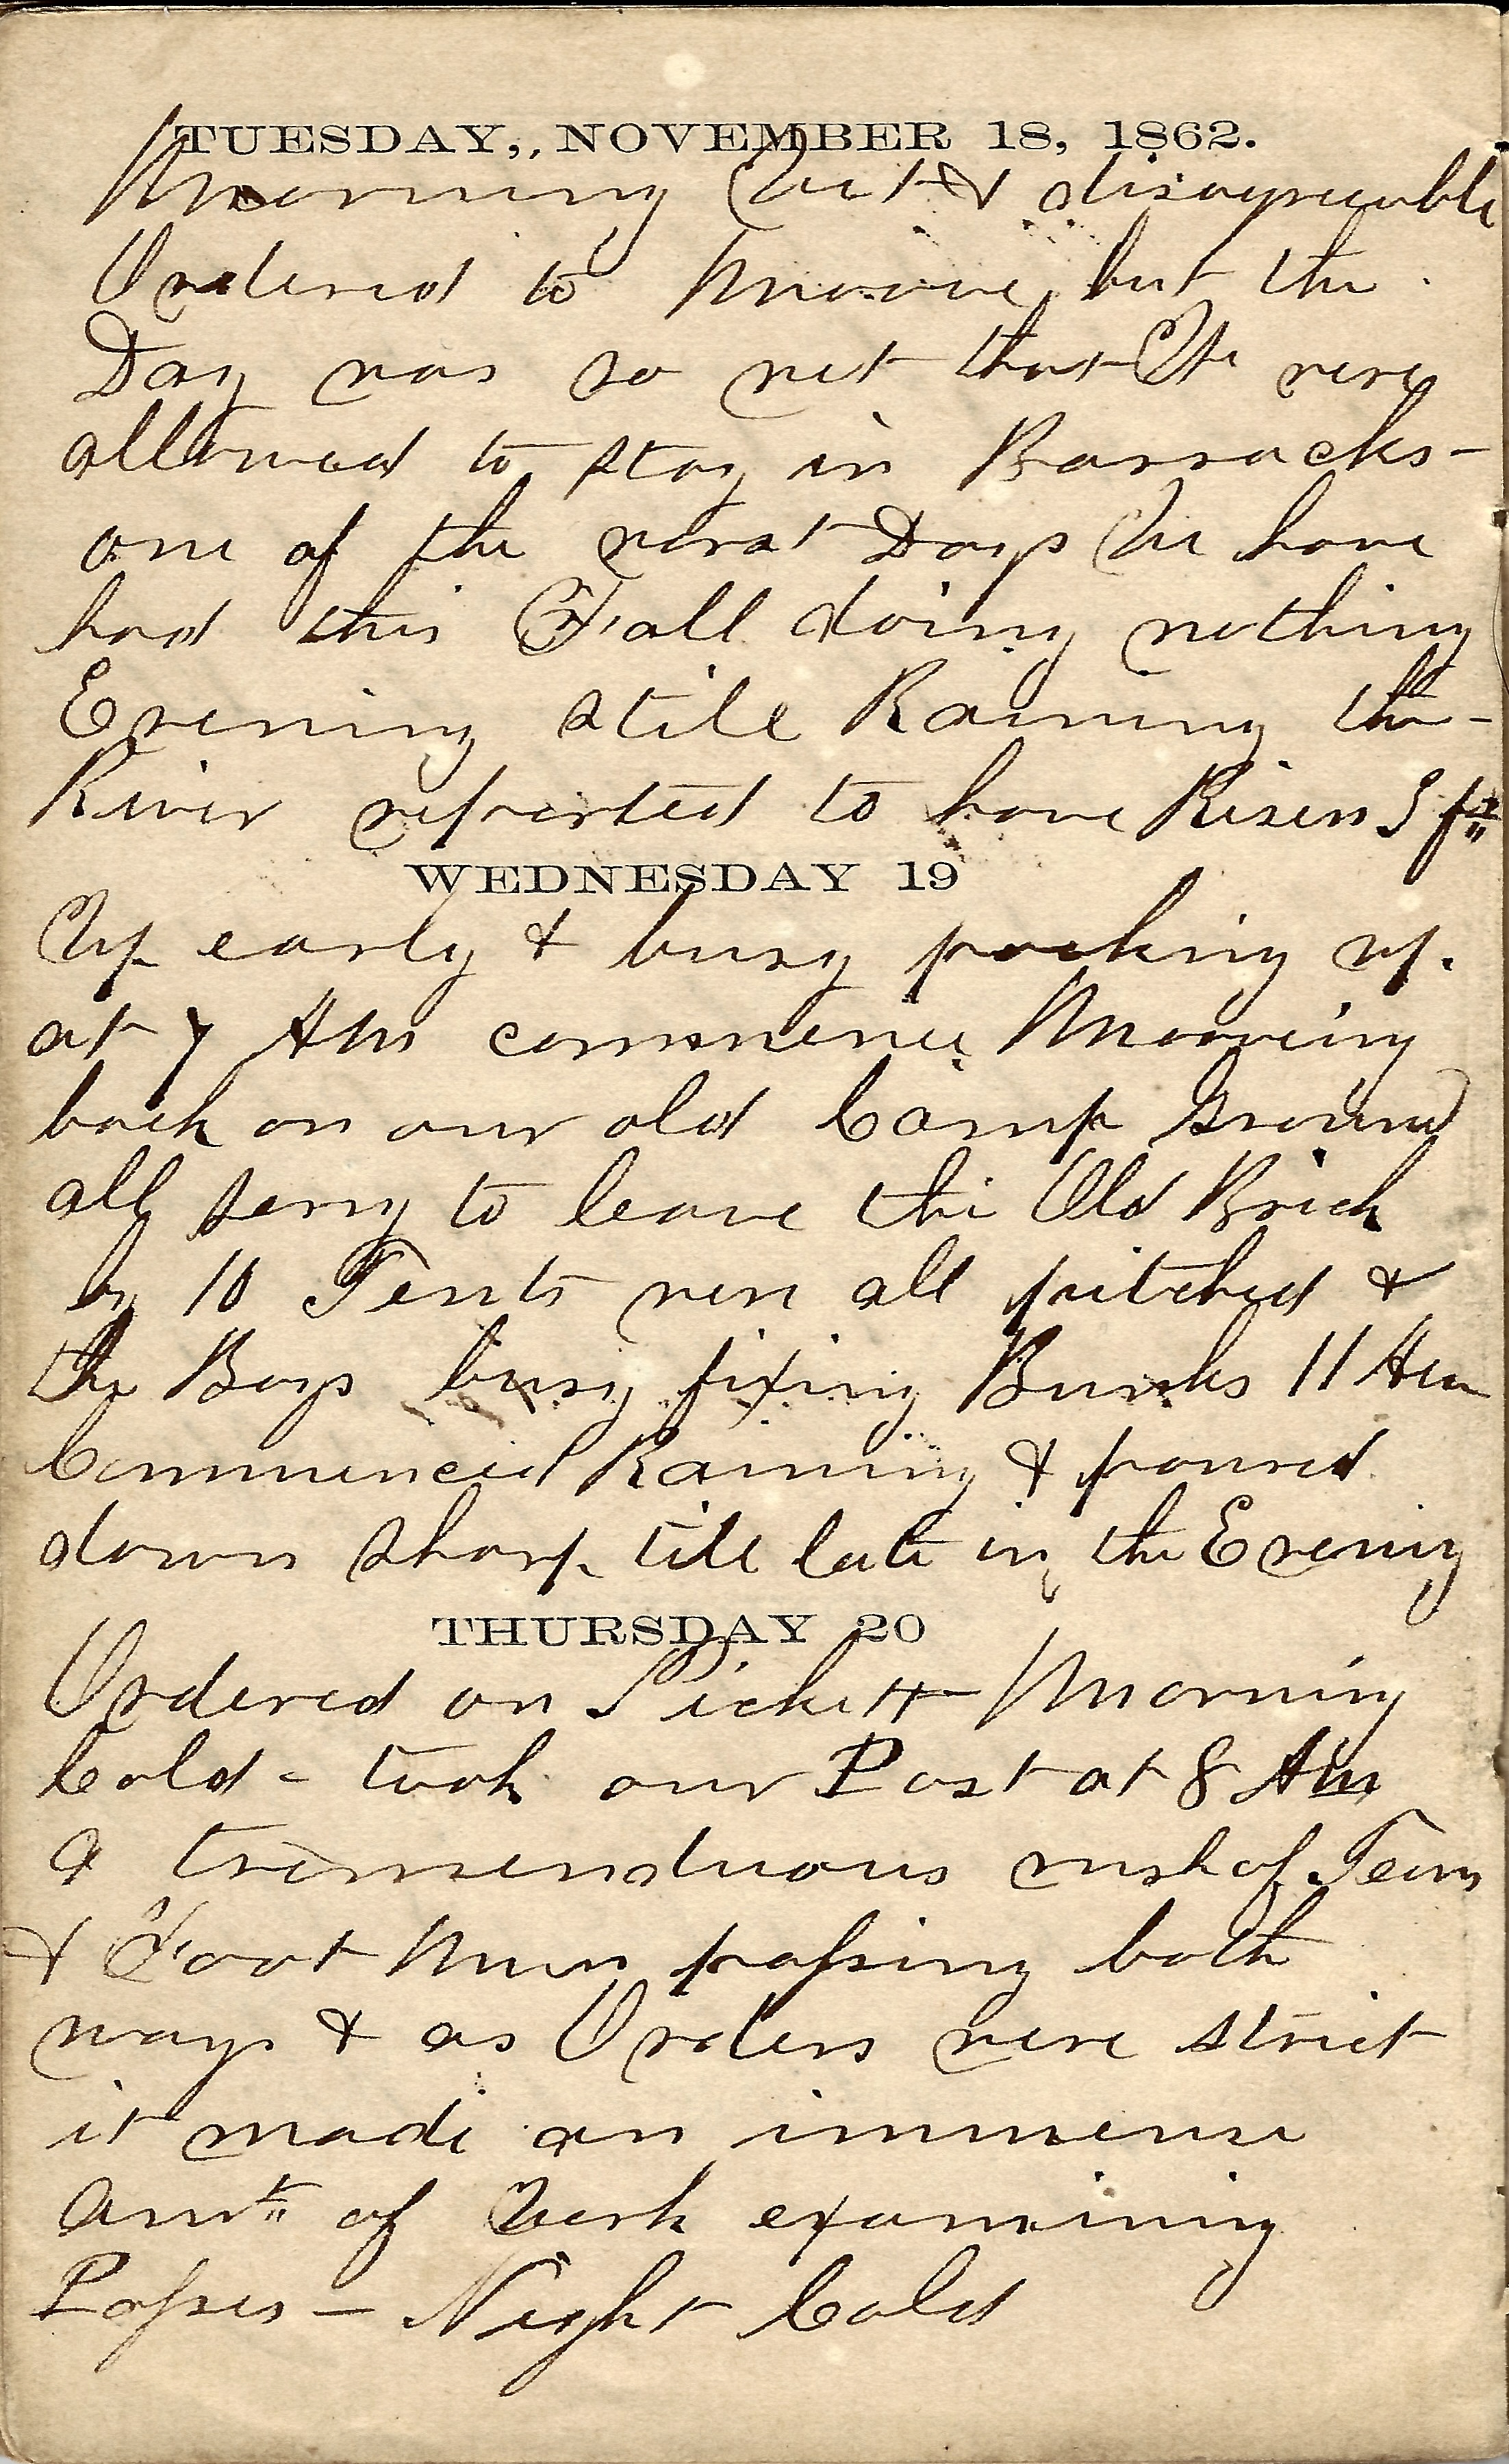 TUESDAY, NOVEMBER 18, 1862.
Morning Wet & disagreeable
Ordered to Moove but the
Day was so wet that We were
allowed to stay in Barracks -
one of the worst Days We have
had this Fall doing nothing
Evening still Raining the -
River reported to have Risen 3 ft
WEDNESDAY 19
Up early & busy packing up.
at 7 AM commence Mooveing
back on our old Camp Ground
all sorry to leave the Old Brick
by 10 Tents were all pitched &
the Boys busy fixing Bunks 11 AM
Commenced Raining & poured
down sharp till late in the Evening
THURSDAY 20
Ordered on Pickett Morning
Cold - took our Post at 8 AM
a tremenduous rush of Teams
& Foot Men passing both
ways & as Orders were strict
it made an immense
Amt of Work examining
Passes - Night Cold